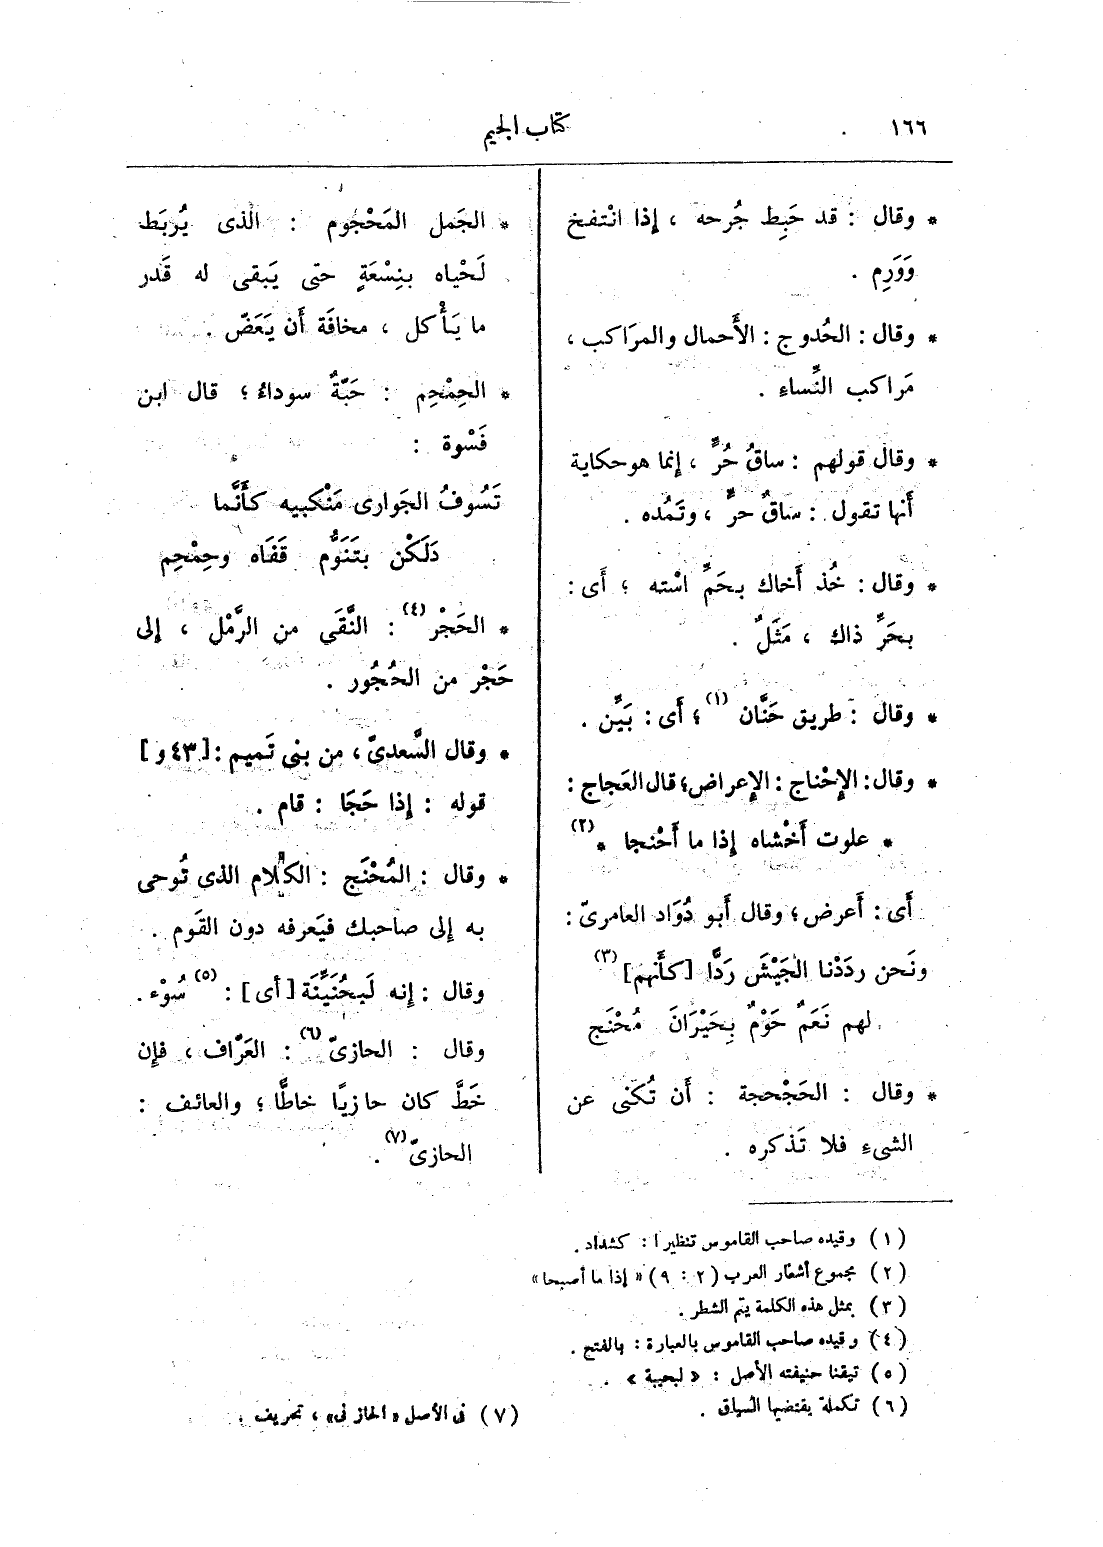 ١٦٦
كتاب الجيم
* وقال : قد حَبِط جُرحه ، إذا انْتفخ
وَوَرِم .
* وقال : الحُدوج : الأَحمال والمرَاكب ،
مَراكب النِّساءِ .
* وقال قولهم : ساقُ حُرٍّ ، إنما هو حكاية
أَنها تقول : ساقُ حرٍّ ، وتَمُده .
* وقال : خُذ أَخاك بحَمِّ اسْته ؛ أَى :
بحَرِّ ذاك ، مَثَلٌ .
* وقال : طريق حَنَّان (١) ؛ أَى : بَيِّن .
* وقال : الإِحْناج : الإِعراض ؛ قال العَجاج :
* علوت أَخْشاه إِذا ما أَحْنجا * (٢)
أَى : أَعرض ؛ وقال أَبو دُوَاد العامرىّ :
ونَحن ردَدْنا الجَيْشَ رَدًّا [كأَنهم] (٣)
لهم نَعَمٌ حَوْمٌ بِحَيْرَانَ مُحْنَج
* وقال : الحَجْحجة : أَن تُكنى عن
الشىءِ فلا تَذكره .
* الجَمل المَحْجوم : الذى يُربَط
لَحْياه بنِسْعَةٍ حتى يَبقى له قَدر
ما يَأْكل ، مخافَة أَن يَعَضّ .
* الحِمْحِم : حَبَّةٌ سوداءُ ؛ قال ابن
فَسْوة :
تَسُوفُ الجَوارى مَنْكبيه كأَنَّما
دَلَكْن بتَنَوُّم قَفَاه وحِمْحِم
* الحَجْر (٤) : النَّقَى من الرَّمْل ، إِلى
حَجْر من الحُجُور .
* وقال السَّعدىّ ، من بنى تَميم : [٤٣ و]
قوله : إِذا حَجَا : قام .
* وقال : المُحْنَج : الكلام الذى تُوحى
به إِلى صاحبك فيَعرفه دون القَوم .
وقال : إِنه لَبحُنَيِّنَة [أى] : (٥) سُوْء .
وقال : الحازىّ (٦) : العَرّاف ، فإِن
خَطَّ كان حازيًا خاطًّا ؛ والعائف :
الحازىّ (٧) .
(١) وقيده صاحب القاموس تنظيرا : كشداد .
(٢) مجموع أشعار العرب (٢ : ٩) « إذا ما أصبحا »
(٣) بمثل هذه الكلمة يتم الشطر .
(٤) وقيده صاحب القاموس بالعبارة : بالفتح .
(٥) تيقنا حنيفته الأصل : « لبحيبة » .
(٦) تكملة يقتضيها السياق .
(٧) فى الأصل « الحازنى » ، تحريف .